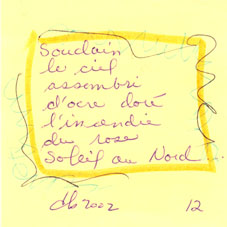 Soudain
le ciel
assombri
d'ocre doré
l'incendie
du rose
Soleil au Nord
db 2002 12